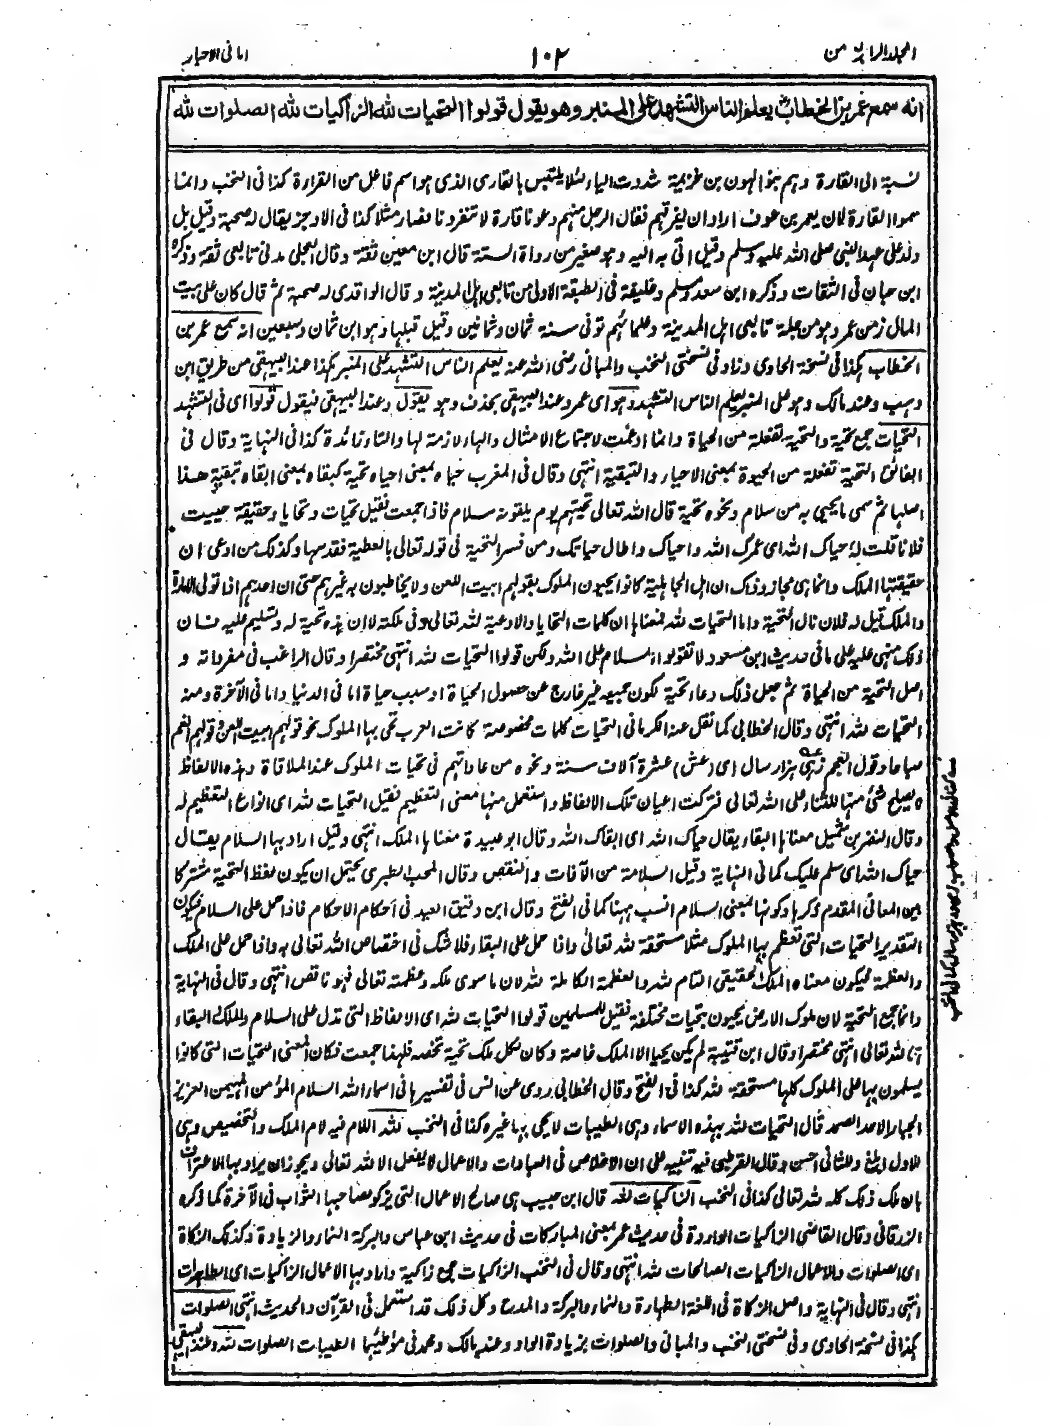 المجلد الرابع من
١٠٢
امانی الاحبار
انه سمع عمر بن الخطاب يعلم الناس التشهد على المنبر وهو يقول قولوا التحيات لله الزاكيات لله الصلوات لله
نسبة الى القارة وهم بنو الهون بن خزيمة شددت الياء لئلا يلتبس بالقارى الذى هو اسم فاعل من القراءة كذا فى النخب وانما
سموا القارة لان يعمر بن عوف اراد ان يفرقهم فقال الرجل منهم دعونا قارة لا تنفرونا فصار مثلا كذا فى الاوجز يقال له صحبة وقيل بل
ولد على عهد النبى صلى الله عليه وسلم وقيل اتى به اليه وهو صغير من رواة الستة قال ابن معين ثقة وقال العجلى مدنى تابعى ثقة وذكره
ابن حبان فى الثقات وذكره ابن سعد ومسلم وخليفة فى الطبقة الاولى من تابعى اهل المدينة وقال الواقدى له صحبة ثم قال كان على بيت
المال زمن عمر وهو من جلة تابعى اهل المدينة وعلمائهم توفى سنة ثمان وثمانين وقيل قبلها وهو ابن ثمان وسبعين انه سمع عمر بن
الخطاب هكذا فى نسخة الحاوى وزاد فى نسختى النخب والمبانى رضى الله عنه يعلم الناس التشهد على المنبر هكذا عند البيهقى من طريق ابن
وهب وعند مالك وهو على المنبر يعلم الناس التشهد وهو اى عمر وعند البيهقى بحذف وهو يقول وعند البيهقى فيقول قولوا اى فى التشهد
التحيات جمع تحية والتحية تفعلة من الحياة وانما ادغمت لاجتماع الامثال والهاء لازمة لها والتاء زائدة كذا فى النهاية وقال فى
الفائق التحية تفعلة من الحيوة بمعنى الاحياء والتبقية انتهى وقال فى المغرب حياه بمعنى احياه تحية كبقاه بمعنى ابقاه تبقية هذا
اصلها ثم سمى ما يحيى به من سلام ونحوه تحية قال الله تعالى تحيتهم يوم يلقونه سلام فاذا جمعت فقيل تحيات وتحايا وحقيقة حييت
فلانا قلت له حياك الله اى عمرك الله واحياك واطال حياتك ومن فسر التحية فى قوله تعالى بالعطية فقد سها وكذلك من ادعى ان
حقيقتها الملك وانما هى مجاز وذاك ان اهل الجاهلية كانوا يحيون الملوك بقولهم ابيت اللعن ولا يخاطبون به غيرهم حتى ان احدهم اذا تولى الامارة
والملك قيل له فلان نال التحية واما التحيات لله فمعناها ان كلمات التحايا والادعية لله تعالى وفى ملكته لا ان هذه تحية له وتسليم عليه فان
ذلك منهى عليه على ما فى حديث ابن مسعود لا تقولوا السلام على الله ولكن قولوا التحيات لله انتهى مختصرا وقال الراغب فى مفرداته و
اصل التحية من الحياة ثم جعل ذلك دعاء تحية لكون جميعه غير خارج عن حصول الحياة او سبب حياة اما فى الدنيا واما فى الآخرة ومنه
التحيات لله انتهى وقال الخطابى كما نقل عنه الكرمانى التحيات كلمات مخصوصة كانت العرب تحيى بها الملوك نحو قولهم ابيت اللعن وقولهم انعم
صباحا وقول العجم زهى هزار سال اى (عش) عشرة آلاف سنة ونحوه من عاداتهم فى تحيات الملوك عند الملاقاة وهذه الالفاظ
لا يصلح شئ منها للثناء على الله تعالى فتركت اعيان تلك الالفاظ واستعمل منها معنى التعظيم فقيل التحيات لله اى انواع التعظيم له
وقال النضر بن شميل معناها البقاء يقال حياك الله اى ابقاك الله وقال ابو عبيدة معناها الملك انتهى وقيل اراد بها السلام يقال
حياك الله اى سلم عليك كما فى النهاية وقيل السلامة من الآفات والنقص وقال المحب الطبرى يحتمل ان يكون لفظ التحية مشتركا
بين المعانى المقدم ذكرها وكونها بمعنى السلام انسب ههنا كما فى الفتح وقال ابن دقيق العيد فى احكام الاحكام فاذا حمل على السلام فيكون
التقدير التحيات التى تعظم بها الملوك مثلا مستحقة لله تعالى واذا حمل على البقاء فلا شك فى اختصاص الله تعالى به واذا حمل على الملك
والعظمة فيكون معناه الملك الحقيقى التام لله والعظمة الكاملة لله لان ما سوى ملكه وعظمته تعالى فهو ناقص انتهى وقال فى النهاية
وانما جمع التحية لان ملوك الارض يحيون بتحيات مختلفة فقيل للمسلمين قولوا التحيات لله اى الالفاظ التى تدل على السلام والملك والبقاء
هى لله تعالى انتهى مختصرا وقال ابن قتيبة لم يكن يحيا الا الملك خاصة وكان لكل ملك تحية تخصه فلهذا جمعت فكان المعنى التحيات التى كانوا
يسلمون بها على الملوك كلها مستحقة لله كذا فى الفتح وقال الخطابى روى عن انس فى تفسيرها فى اسماء الله السلام المؤمن المهيمن العزيز
الجبار الاحد الصمد قال التحيات لله بهذه الاسماء وهى الطيبات لا يحيى بها غيره كذا فى النخب لله اللام فيه لام الملك والتخصيص وهى
للاول ابلغ وللثانى احسن وقال القرطبى فيه تنبيه على ان الاخلاص فى العبادات والاعمال لا يفعل الا لله تعالى ويجوز ان يراد بها الاعتراف
بان ملك ذلك كله لله تعالى كذا فى النخب الزاكيات لله قال ابن حبيب هى صالح الاعمال التى يزكو لصاحبها الثواب فى الآخرة كما ذكره
الزرقانى وقال القاضى الزاكيات الواردة فى حديث عمر بمعنى المباركات فى حديث ابن عباس والبركة النماء والزيادة وكذلك الزكاة
اى الصلوات والاعمال الزاكيات الصالحات لله انتهى وقال فى النخب الزاكيات جمع زاكية واراد بها الاعمال الزاكيات اى الطاهرات
انتهى وقال فى النهاية واصل الزكاة فى اللغة الطهارة والنماء والبركة والمدح وكل ذلك قد استعمل فى القرآن والحديث انتهى الصلوات
هكذا فى نسخة الحاوى وفى نسختى النخب والمبانى والصلوات بزيادة الواو وعند مالك ومحمد فى مؤطئيهما الطيبات الصلوات لله وعند البيهقى